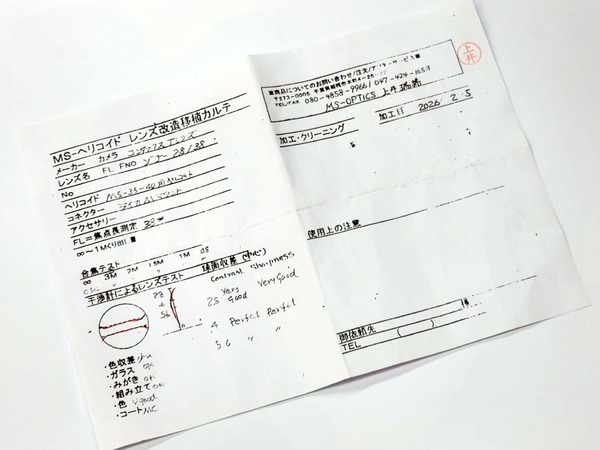 MS-ヘリコイド レンズ改造移植カルテ
メーカー カメラ コンタックス Tレンズ
レンズ名 FL FNO ゾナー 28/38
No
ヘリコイド MS-35~40用ヘリコイド
コネクター ライカMマウント
アクセサリー
FL=焦点長測定 38
∞~1M くり出し量
合焦テスト ∞ 3M 2M 1.5M 1M 0.8
OK
干渉計によるレンズテスト
球面収差
Contrast Sharpness
28
4
5.6
2.8 Very Good Very Good
4 Perfect Perfect
5.6 〃 〃
・色収差 少ない
・ガラス OK
・みがき OK
・組み立て OK
・色 V.good
・コート MC
上井
商品についてのお問い合わせ/注文/アフターサービス
TEL/FAX 080-4858-9966 / 047-424-1653
MS-OPTICS
加工・クリーニング
加工日 2026 2 5
使用上の注意
様
御依頼先
TEL